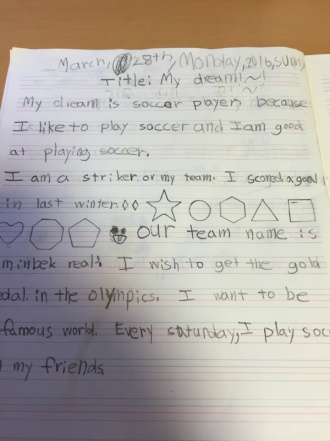 March, 28th, Monday, 2016, sunny
Title: My dream!~!
My dream is soccer player, because
I like to play soccer and I am good
at playing soccer.
I am a striker or my team. I scored a goal
in last winter.
our team name is
minbek real. I wish to get the gold
edal in the olympics. I want to be
famous world. Every saturday, I play soc
my friends